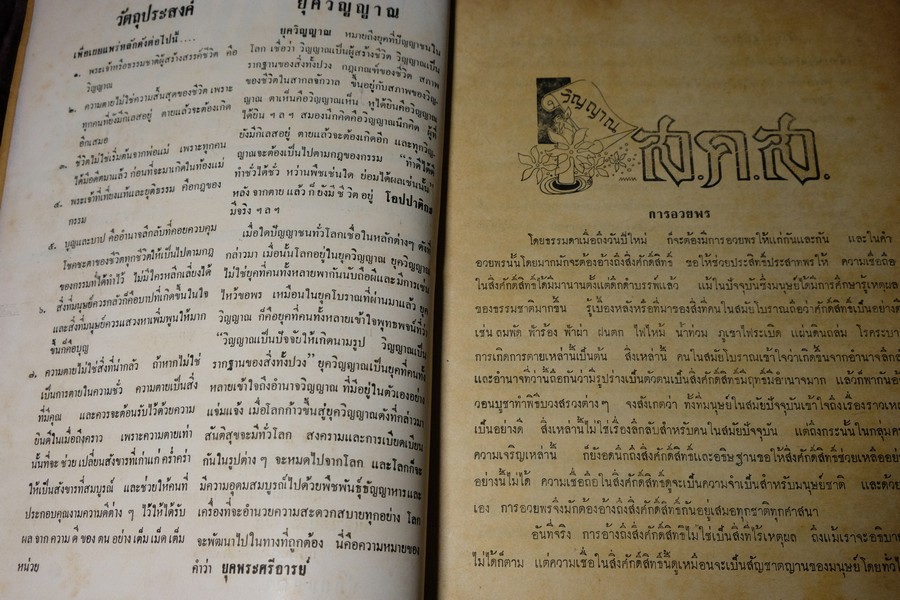 วัตถุประสงค์
เพื่อเผยแพร่หลักดังต่อไปนี้....
๑. พระเจ้าหรือธรรมชาติผู้สร้างสรรค์ชีวิต คือ
วิญญาณ
๒. ความตายไม่ใช่ความสิ้นสุดของชีวิต เพราะ
ทุกคนที่ยังมีกิเลสอยู่ ตายแล้วจะต้องเกิด
อีกเสมอ
๓. ชีวิตไม่ใช่เริ่มต้นจากพ่อแม่ เพราะทุกคน
ได้มีอดีตมาแล้ว ก่อนที่จะมาเกิดในท้องแม่
๔. พระเจ้าที่เที่ยงแท้และยุติธรรม คือกฎของ
กรรม
๕. บุญและบาป คืออำนาจลึกลับที่คอยควบคุม
โชคชะตาของชีวิตทุกชีวิตให้เป็นไปตามกฎ
ของกรรมที่ได้ทำไว้ ไม่มีใครหลีกเลี่ยงได้
๖. สิ่งที่มนุษย์ควรกลัวก็คือบาปที่เกิดขึ้นในใจ
และสิ่งที่มนุษย์ควรแสวงหาเพิ่มพูนให้มาก
ขึ้นก็คือบุญ
๗. ความตายไม่ใช่สิ่งที่น่ากลัว ถ้าหากไม่ใช่
เป็นการตายในความชั่ว ความตายเป็นสิ่ง
ที่มีคุณ และควรจะต้อนรับไว้ด้วยความ
ยินดีในเมื่อถึงคราว เพราะความตายเท่า
นั้นที่จะช่วยเปลี่ยนสังขารที่เก่าแก่ คร่ำคร่า
ให้เป็นสังขารที่สมบูรณ์ และช่วยให้คนที่
ประกอบคุณงามความดีต่าง ๆ ไว้ให้ได้รับ
ผลจากความดีของตนอย่างเต็มเม็ดเต็ม
หน่วย
ยุควิญญาณ
ยุควิญญาณ หมายถึงยุคที่ปัญญาชนใน
โลก เชื่อว่า วิญญาณเป็นผู้สร้างชีวิต วิญญาณเป็น
รากฐานของสิ่งทั้งปวง กฎเกณฑ์ของชีวิต สภาพ
ของชีวิตในสากลจักรวาล ขึ้นอยู่กับสภาพของวิญ-
ญาณ ตาเห็นคือวิญญาณเห็น หูได้ยินคือวิญญาณ
ได้ยิน ฯลฯ สมองนึกคิดคือวิญญาณนึกคิด ผู้ที่
ยังมีกิเลสอยู่ ตายแล้วจะต้องเกิดอีก และทุกวิญ-
ญาณจะต้องเป็นไปตามกฎของกรรม "ทำดีได้ดี
ทำชั่วได้ชั่ว หว่านพืชเช่นใด ย่อมได้ผลเช่นนั้น"
หลังจากตายแล้วก็ยังมีชีวิตอยู่ โอปปาติกะ
มีจริง ฯลฯ
เมื่อใดปัญญาชนทั่วโลกเชื่อในหลักต่างๆ ดังที่
กล่าวมา เมื่อนั้นโลกอยู่ในยุควิญญาณ ยุควิญญาณ
ไม่ใช่ยุคที่คนทั้งหลายพากันนับถือผีและมีการเซ่น
ไหว้ขอพร เหมือนในยุคโบราณที่ผ่านมาแล้ว ยุค
วิญญาณ ก็คือยุคที่คนทั้งหลายเข้าใจพุทธพจน์ที่ว่า
"วิญญาณเป็นปัจจัยให้เกิดนามรูป วิญญาณเป็น
รากฐานของสิ่งทั้งปวง" ยุควิญญาณเป็นยุคที่คนทั้ง
หลายเข้าใจถึงอำนาจวิญญาณ ที่มีอยู่ในตัวเองอย่าง
แจ่มแจ้ง เมื่อโลกก้าวขึ้นสู่ยุควิญญาณดังที่กล่าวมา
สันติสุขจะมีทั่วโลก สงครามและการเบียดเบียน
กันในรูปต่าง ๆ จะหมดไปจากโลก และโลกก็จะ
มีความอุดมสมบูรณ์ไปด้วยพืชพันธุ์ธัญญาหารและ
เครื่องที่จะอำนวยความสะดวกสบายทุกอย่าง โลก
จะพัฒนาไปในทางที่ถูกต้อง นี่คือความหมายของ
คำว่า ยุคพระศรีอารย์
วิญญาณ
ส.ค.ส.
การอวยพร
โดยธรรมดาเมื่อถึงวันปีใหม่ ก็จะต้องมีการอวยพรให้แก่กันและกัน และในคำ
อวยพรนั้นโดยมากมักจะต้องอ้างถึงสิ่งศักดิ์สิทธิ์ ขอให้ช่วยประสิทธิ์ประสาทพรให้ ความเชื่อถือ
ในสิ่งศักดิ์สิทธิ์ได้มีมานานตั้งแต่ดึกดำบรรพ์แล้ว แม้ในปัจจุบันซึ่งมนุษย์ได้มีการศึกษารู้เหตุผล
ของธรรมชาติมากขึ้น รู้เบื้องหลังหรือที่มาของสิ่งที่คนในสมัยโบราณถือว่าศักดิ์สิทธิ์เป็นอย่างดี
เช่น ลมพัด ฟ้าร้อง ฟ้าผ่า ฝนตก ไฟไหม้ น้ำท่วม ภูเขาไฟระเบิด แผ่นดินถล่ม โรคระบาด
การเกิดการตายเหล่านี้เป็นต้น สิ่งเหล่านี้ คนในสมัยโบราณเข้าใจว่าเกิดขึ้นจากอำนาจลึกลับ
และอำนาจที่ว่านี้ถือกันว่ามีรูปร่างเป็นตัวตนเป็นสิ่งศักดิ์สิทธิ์มีฤทธิ์มีอำนาจมาก แล้วก็พากันอ้อน
วอนบูชาทำพิธีบวงสรวงต่าง ๆ จงสังเกตว่า ทั้งที่มนุษย์ในสมัยปัจจุบันเข้าใจถึงเรื่องราวเหล่า
เป็นอย่างดี สิ่งเหล่านี้ไม่ใช่เรื่องลึกลับสำหรับคนในสมัยปัจจุบัน แต่ถึงกระนั้นในกลุ่มคน
ความเจริญเหล่านี้ ก็ยังอดนึกถึงสิ่งศักดิ์สิทธิ์และอธิษฐานขอให้สิ่งศักดิ์สิทธิ์ช่วยเหลือ
อย่างนี้ไม่ได้ ความเชื่อถือในสิ่งศักดิ์สิทธิ์ดูจะเป็นความจำเป็นสำหรับมนุษย์ชาติ และด้วย
เอง การอวยพรจึงมักต้องอ้างถึงสิ่งศักดิ์สิทธิ์กันอยู่เสมอทุกชาติทุกศาสนา
อันที่จริง การอ้างถึงสิ่งศักดิ์สิทธิ์ไม่ใช่เป็นสิ่งที่ไร้เหตุผล ถึงแม้เราจะอธิบาย
ไม่ได้ก็ตาม แต่ความเชื่อในสิ่งศักดิ์สิทธิ์นั้นดูเหมือนจะเป็นสัญชาตญานของมนุษย์โดยทั่วไป